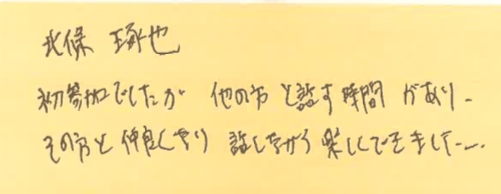 北條 琢也
初参加でしたが 他の方と話す時間があり、
その方と仲良くなり 話しながら楽しくできました〜。